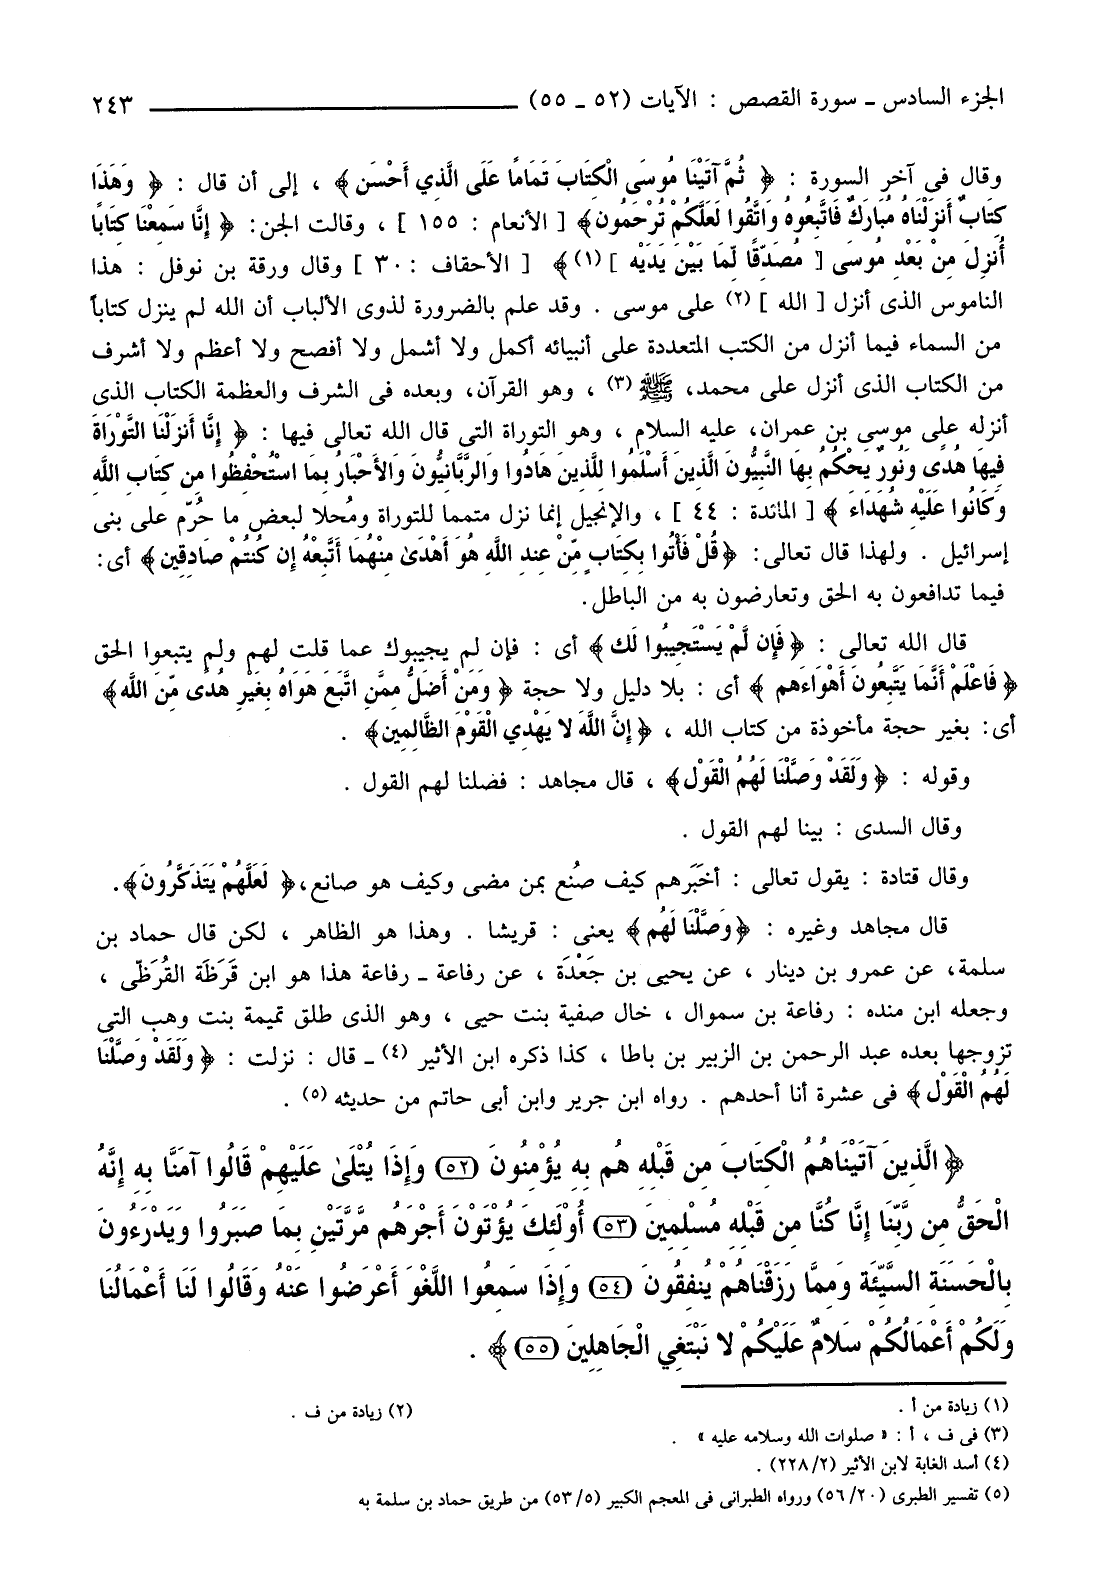 الجزء السادس ـ سورة القصص : الآيات (٥٢ ـ ٥٥) ٢٤٣
وقال فى آخر السورة : ﴿ ثُمَّ آتَيْنَا مُوسَى الْكِتَابَ تَمَامًا عَلَى الَّذِي أَحْسَنَ ﴾ ، إلى أن قال : ﴿ وَهَذَا
كِتَابٌ أَنزَلْنَاهُ مُبَارَكٌ فَاتَّبِعُوهُ وَاتَّقُوا لَعَلَّكُمْ تُرْحَمُونَ﴾ [ الأنعام : ١٥٥ ] ، وقالت الجن: ﴿ إِنَّا سَمِعْنَا كِتَابًا
أُنزِلَ مِنْ بَعْدِ مُوسَى [ مُصَدِّقًا لِّمَا بَيْنَ يَدَيْهِ ] (١)﴾ [ الأحقاف : ٣٠ ] وقال ورقة بن نوفل : هذا
الناموس الذى أنزل [ الله ] (٢) على موسى . وقد علم بالضرورة لذوى الألباب أن الله لم ينزل كتاباً
من السماء فيما أنزل من الكتب المتعددة على أنبيائه أكمل ولا أشمل ولا أفصح ولا أعظم ولا أشرف
من الكتاب الذى أنزل على محمد، ﷺ (٣) ، وهو القرآن، وبعده فى الشرف والعظمة الكتاب الذى
أنزله على موسى بن عمران، عليه السلام ، وهو التوراة التى قال الله تعالى فيها : ﴿ إِنَّا أَنزَلْنَا التَّوْرَاةَ
فِيهَا هُدًى وَنُورٌ يَحْكُمُ بِهَا النَّبِيُّونَ الَّذِينَ أَسْلَمُوا لِلَّذِينَ هَادُوا وَالرَّبَّانِيُّونَ وَالأَحْبَارُ بِمَا اسْتُحْفِظُوا مِن كِتَابِ اللَّهِ
وَكَانُوا عَلَيْهِ شُهَدَاءَ ﴾ [ المائدة : ٤٤ ] ، والإنجيل إنما نزل متمما للتوراة ومُحلا لبعض ما حُرّم على بنى
إسرائيل . ولهذا قال تعالى: ﴿قُلْ فَأْتُوا بِكِتَابٍ مِّنْ عِندِ اللَّهِ هُوَ أَهْدَىٰ مِنْهُمَا أَتَّبِعْهُ إِن كُنتُمْ صَادِقِينَ﴾ أى:
فيما تدافعون به الحق وتعارضون به من الباطل.
قال الله تعالى : ﴿فَإِن لَّمْ يَسْتَجِيبُوا لَكَ﴾ أى : فإن لم يجيبوك عما قلت لهم ولم يتبعوا الحق
﴿فَاعْلَمْ أَنَّمَا يَتَّبِعُونَ أَهْوَاءَهُمْ ﴾ أى : بلا دليل ولا حجة ﴿ وَمَنْ أَضَلُّ مِمَّنِ اتَّبَعَ هَوَاهُ بِغَيْرِ هُدًى مِّنَ اللَّهِ﴾
أى: بغير حجة مأخوذة من كتاب الله ، ﴿إِنَّ اللَّهَ لا يَهْدِي الْقَوْمَ الظَّالِمِينَ﴾ .
وقوله : ﴿وَلَقَدْ وَصَّلْنَا لَهُمُ الْقَوْلَ﴾ ، قال مجاهد : فصلنا لهم القول .
وقال السدى : بينا لهم القول .
وقال قتادة : يقول تعالى : أخبَرهم كيف صنُع بمن مضى وكيف هو صانع،﴿ لَعَلَّهُمْ يَتَذَكَّرُونَ﴾.
قال مجاهد وغيره : ﴿وَصَّلْنَا لَهُمُ ﴾ يعنى : قريشا . وهذا هو الظاهر ، لكن قال حماد بن
سلمة، عن عمرو بن دينار ، عن يحيى بن جَعْدَة ، عن رفاعة ـ رفاعة هذا هو ابن قَرَظَة القُرَظىّ ،
وجعله ابن منده : رفاعة بن سموال ، خال صفية بنت حيى ، وهو الذى طلق تميمة بنت وهب التى
تزوجها بعده عبد الرحمن بن الزبير بن باطا ، كذا ذكره ابن الأثير (٤) ـ قال : نزلت : ﴿ وَلَقَدْ وَصَّلْنَا
لَهُمُ الْقَوْلَ ﴾ فى عشرة أنا أحدهم . رواه ابن جرير وابن أبى حاتم من حديثه (٥) .
﴿ الَّذِينَ آتَيْنَاهُمُ الْكِتَابَ مِن قَبْلِهِ هُم بِهِ يُؤْمِنُونَ (٥٢) وَإِذَا يُتْلَىٰ عَلَيْهِمْ قَالُوا آمَنَّا بِهِ إِنَّهُ
الْحَقُّ مِن رَّبِّنَا إِنَّا كُنَّا مِن قَبْلِهِ مُسْلِمِينَ (٥٣) أُوْلَئِكَ يُؤْتَوْنَ أَجْرَهُم مَّرَّتَيْنِ بِمَا صَبَرُوا وَيَدْرَءُونَ
بِالْحَسَنَةِ السَّيِّئَةَ وَمِمَّا رَزَقْنَاهُمْ يُنفِقُونَ (٥٤) وَإِذَا سَمِعُوا اللَّغْوَ أَعْرَضُوا عَنْهُ وَقَالُوا لَنَا أَعْمَالُنَا
وَلَكُمْ أَعْمَالُكُمْ سَلامٌ عَلَيْكُمْ لا نَبْتَغِي الْجَاهِلِينَ (٥٥)﴾ .
(١) زيادة من أ . (٢) زيادة من ف .
(٣) فى ف ، أ : « صلوات الله وسلامه عليه » .
(٤) أسد الغابة لابن الأثير (٢/ ٢٢٨) .
(٥) تفسير الطبرى (٢٠/ ٥٦) ورواه الطبرانى فى المعجم الكبير (٥/ ٥٣) من طريق حماد بن سلمة به